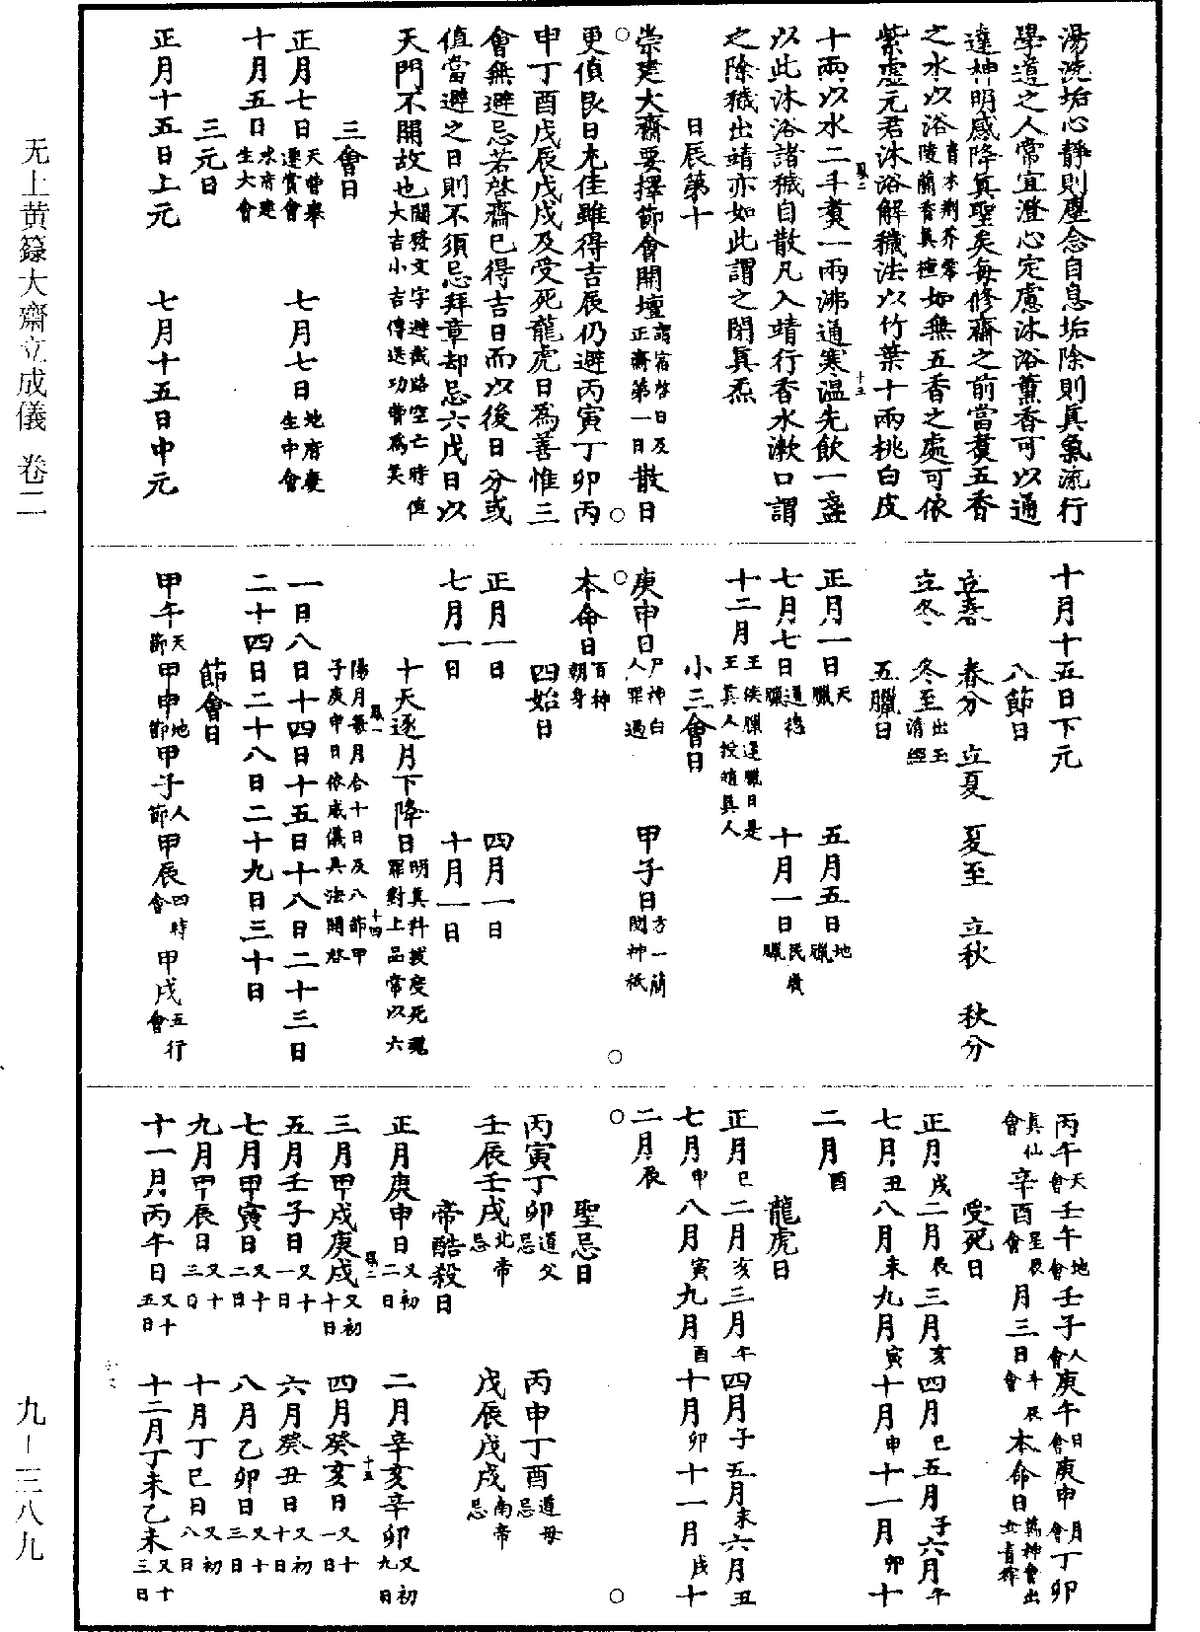 无上黄籙大齋立成儀 卷二
湯洗垢心靜則塵念自息垢除則真氣流行
學道之人常宜澄心定慮沐浴薰香可以通
達神明感降真聖矣每修齋之前當煑五香
之水以浴青木荆芥零陵蘭香真檀如無五香之處可依
紫虛元君沐浴解穢法以竹葉十兩桃白皮
十兩以水二斗煑一兩沸通寒温先飲一盞
以此沐浴諸穢自散凡入靖行香水漱口謂
之除穢出靖亦如此謂之閉真炁
日辰第十
崇建大齋要擇節會開壇謂宿啓日及正齋第一日散日
更值良日尤佳雖得吉辰仍避丙寅丁卯丙
申丁酉戊辰戊戌及受死龍虎日為善惟三
會無避忌若啓齋已得吉日而以後日分或
值當避之日則不須忌拜章却忌六戊日以
天門不開故也關發文字避截路空亡時值大吉小吉傳送功曹為美
三會日
正月七日天曹舉遷賞會 七月七日地府慶生中會
十月五日水府建生大會
三元日
正月十五日上元 七月十五日中元
十月十五日下元
八節日
立春 春分 立夏 夏至 立秋 秋分
立冬 冬至出玉清經
五臘日
正月一日天臘 五月五日地臘
七月七日道德臘 十月一日民歲臘
十二月王侯臘逐臘日是王真人授趙真人
小三會日
庚申日尸神白人罪過 甲子日方一簡閱神祇
本命日百神朝身
四始日
正月一日 四月一日
七月一日 十月一日
十天逐月下降日明真科拔度死魂罪對上品常以六
陽月每月合十日及八節甲子庚申日依威儀具法開啓
一日八日十四日十五日十八日二十三日
二十四日二十八日二十九日三十日
節會日
甲午天節甲申地節甲子人節甲辰四時會甲戌五行會
丙午天會壬午地會壬子人會庚午日會庚申月會丁卯
真仙會辛酉星辰會月三日斗辰會本命日萬神會出女青科
受死日
正月戌二月辰三月亥四月巳五月子六月午
七月丑八月未九月寅十月申十一月卯十
二月酉
龍虎日
正月巳二月亥三月午四月子五月未六月丑
七月申八月寅九月酉十月卯十一月戌十
二月辰
聖忌日
丙寅丁卯道父忌 丙申丁酉道母忌
壬辰壬戌北帝忌 戊辰戊戌南帝忌
帝酷殺日
正月庚申日又初二日 二月辛亥辛卯又初九日
三月甲戌庚戌又初十日 四月癸亥日又十一日
五月壬子日又十一日 六月癸丑日又初十日
七月甲寅日又十二日 八月乙卯日又十三日
九月甲辰日又十三日 十月丁巳日又初八日
十一月丙午日又十五日 十二月丁未乙未又十三日
九－三八九